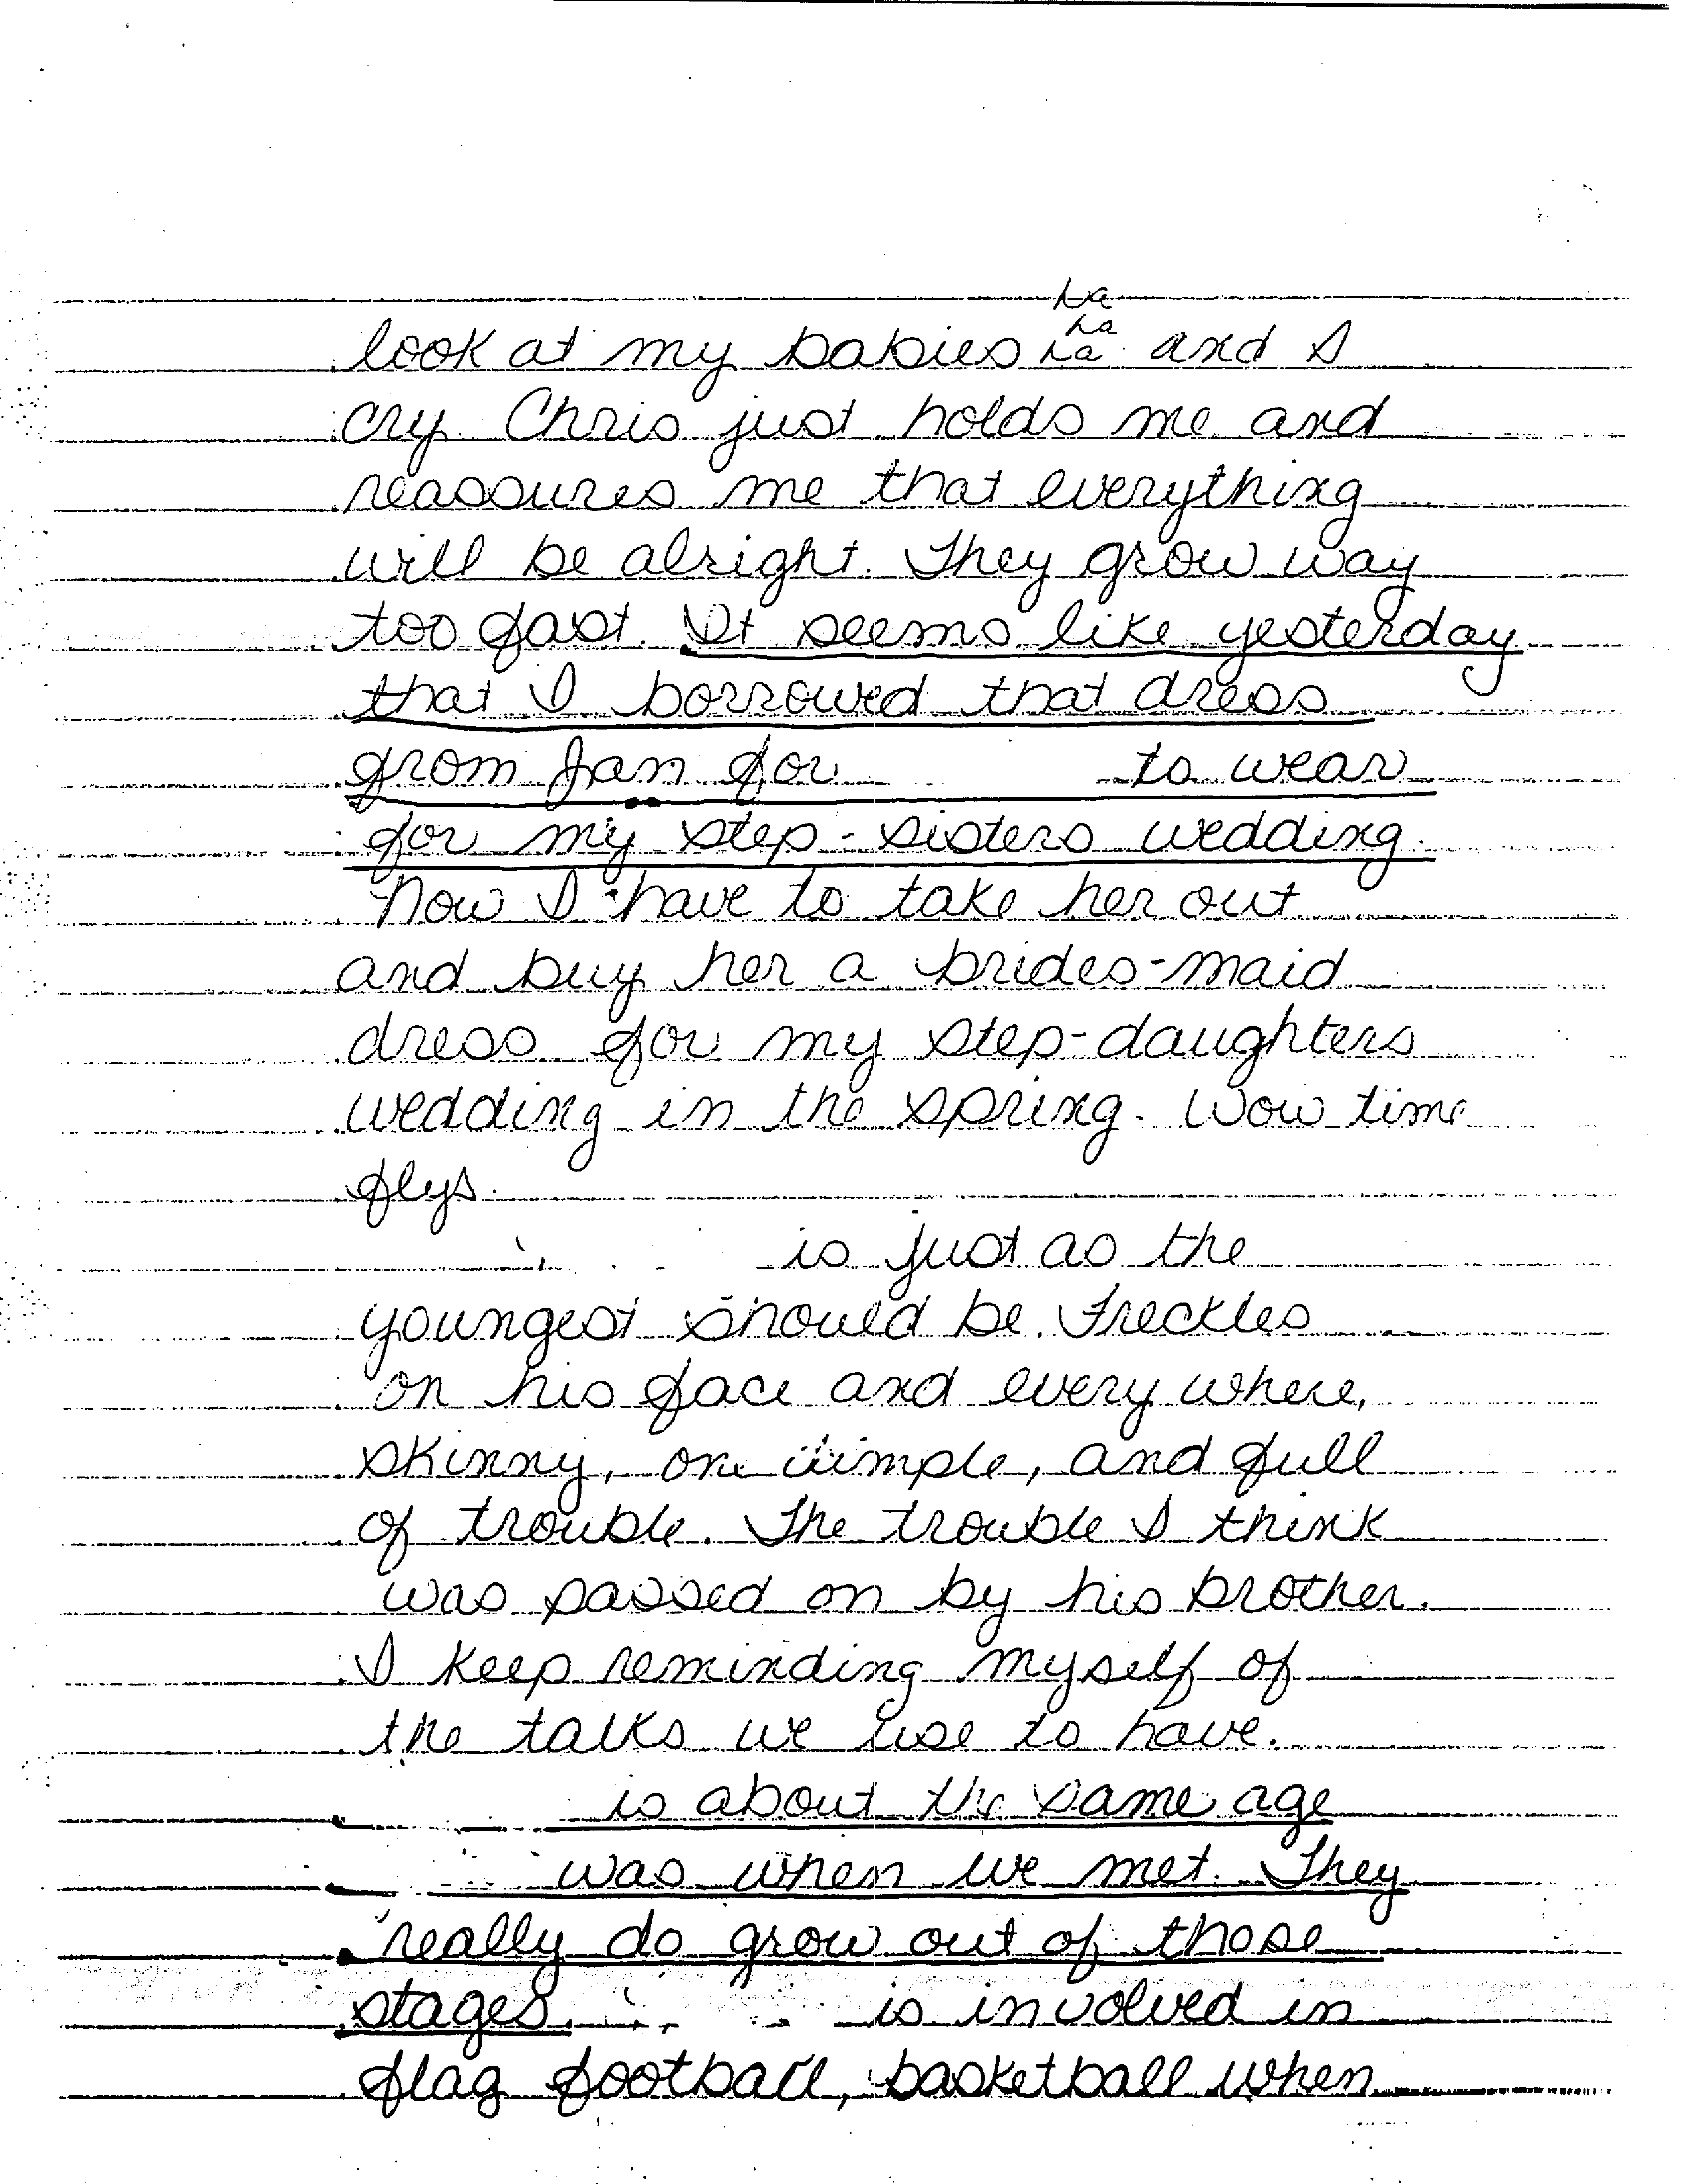 Ha
Ha
look at my babies Ha and I
cry. Chris just holds me and
reassures me that everything
will be alright. They grow way
too fast. It seems like yesterday
that I borrowed that dress
from Jan for to wear
for my step-sisters wedding.
Now I have to take her out
and buy her a brides-maid
dress for my step-daughters
wedding in the spring. Wow time
flys.
is just as the
youngest should be. Freckles
on his face and every where,
skinny, one dimple, and full
of trouble. The trouble I think
was passed on by his brother.
I keep reminding myself of
the talks we use to have.
is about the same age
was when we met. They
really do grow out of those
stages. is involved in
flag football, basketball when